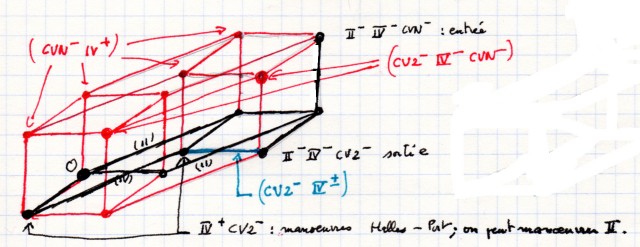 II⁻ IV⁻ CVN⁻ : entrée
(CVN⁻ IV⁺)
(CV2⁻ IV⁻ CVN⁻)
(II)
O
(IV)
(II)
II⁻ IV⁻ CV2⁻ sortie
(CV2⁻ IV±)
IV⁺ CV2⁻ : manœuvres Halles - Port ; on peut manœuvrer II.